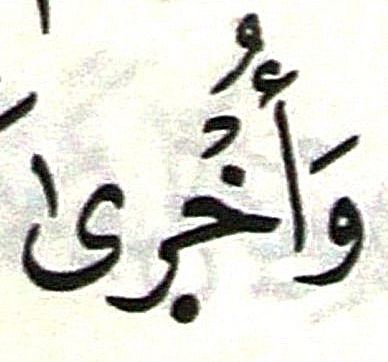 وَأُخْر۪ىٰ